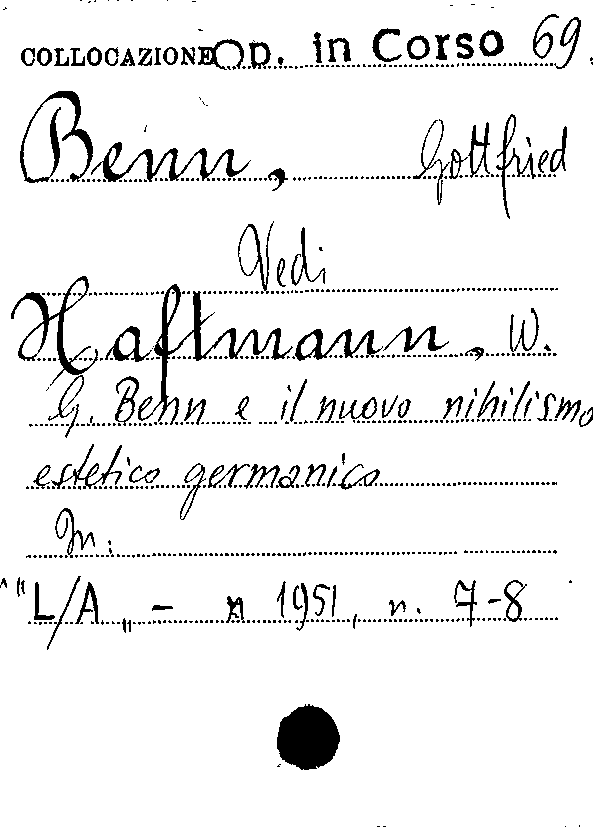 COLLOCAZIONE OP. in Corso 69.
Benn, Gottfried
Vedi
Haftmann, W.
G. Benn e il nuovo nihilismo
estetico germanico
In:
"L/A„ - n 1951, n. 7-8